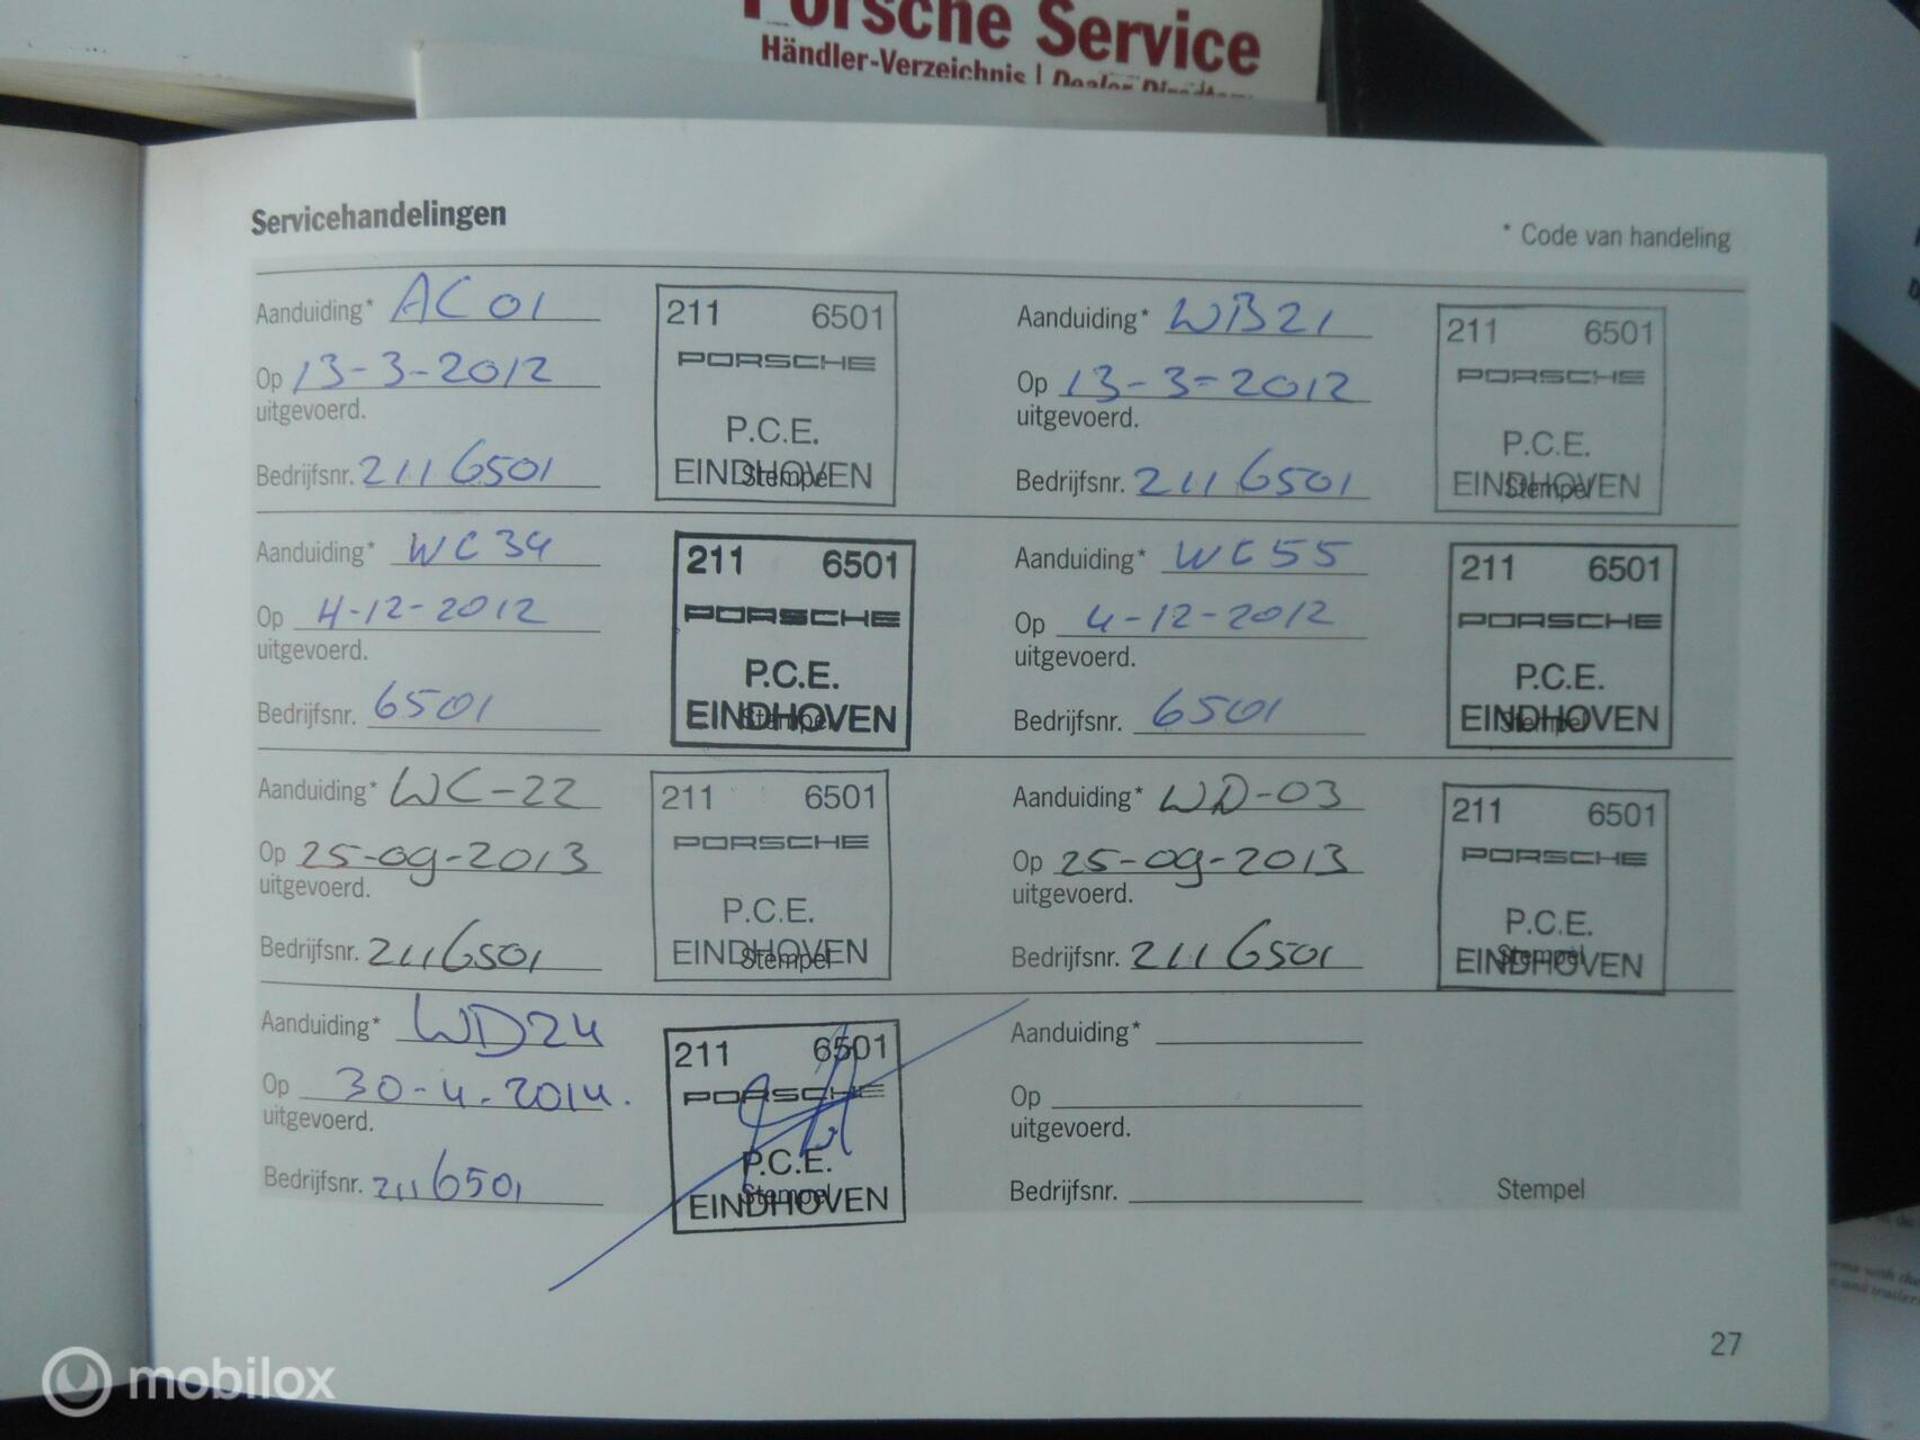 Porsche Service
Händler-Verzeichnis | Dealer Directory
Servicehandelingen
* Code van handeling
Aanduiding* AC01
Op 13-3-2012
uitgevoerd.
Bedrijfsnr. 211 6501
211 6501
PORSCHE
P.C.E.
EINDHOVEN
Stempel
Aanduiding* WB21
Op 13-3-2012
uitgevoerd.
Bedrijfsnr. 211 6501
211 6501
PORSCHE
P.C.E.
EINDHOVEN
Stempel
Aanduiding* WC34
Op 4-12-2012
uitgevoerd.
Bedrijfsnr. 6501
211 6501
PORSCHE
P.C.E.
EINDHOVEN
Stempel
Aanduiding* WC55
Op 4-12-2012
uitgevoerd.
Bedrijfsnr. 6501
211 6501
PORSCHE
P.C.E.
EINDHOVEN
Stempel
Aanduiding* WC-22
Op 25-09-2013
uitgevoerd.
Bedrijfsnr. 211 6501
211 6501
PORSCHE
P.C.E.
EINDHOVEN
Stempel
Aanduiding* WD-03
Op 25-09-2013
uitgevoerd.
Bedrijfsnr. 211 6501
211 6501
PORSCHE
P.C.E.
EINDHOVEN
Stempel
Aanduiding* WD24
Op 30-4-2014.
uitgevoerd.
Bedrijfsnr. 211 6501
211 6501
PORSCHE
P.C.E.
EINDHOVEN
Stempel
Aanduiding*
Op
uitgevoerd.
Bedrijfsnr.
Stempel
27
mobilox